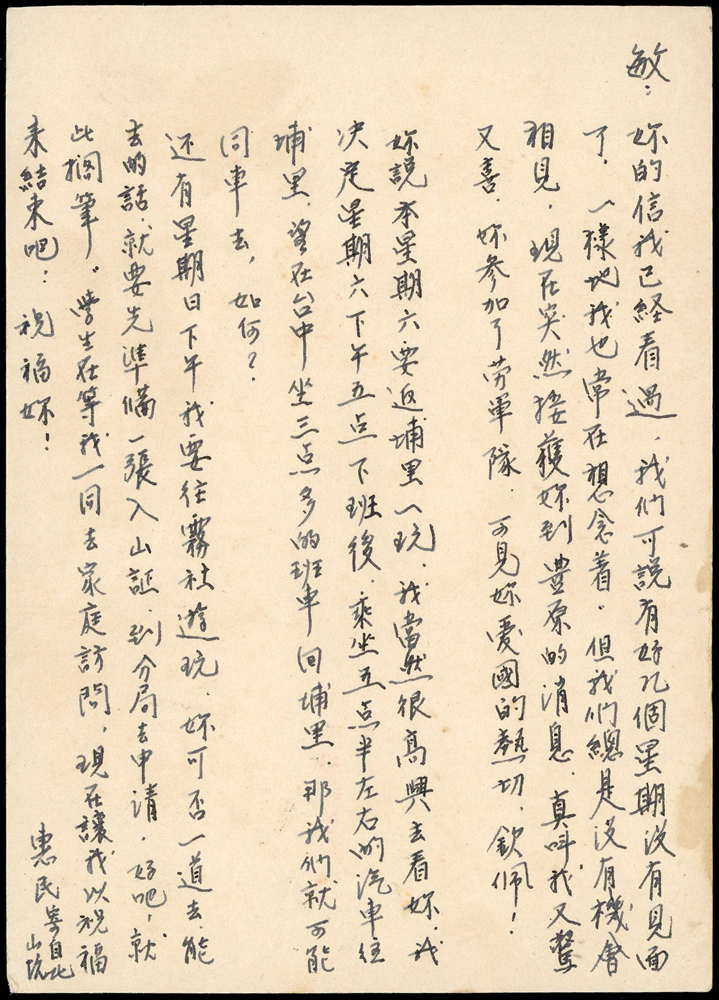 敏：
妳的信我已経看過，我們可說有好几個星期没有見面
了，一樣地我也常在想念着。但我們總是没有機會
相見，現在突然接獲妳到豊原的消息，真叫我又驚
又喜，妳參加了労軍隊，可見妳愛國的熱切，欽佩！
妳說本星期六要返埔里一玩，我當然很高興去看妳，我
决定星期六下午五点下班後，乘坐五点半左右的汽車往
埔里，望在台中坐三点多的班車回埔里，那我們就可能
同車去，如何？
还有星期日下午我要往霧社遊玩，妳可否一道去，能
去的話，就要先準備一張入山証，到分局去申清，好吧，就
此擱筆。學生在等我一同去家庭訪問，現在讓我以祝福
来結束吧：祝福妳！
惠民寄自北
山坑